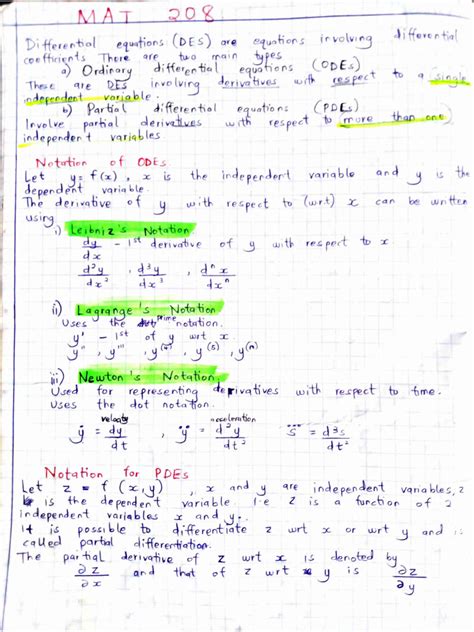 MAT 208
Differential equations (DEs) are equations involving differential
coefficients There are two main types
a) Ordinary differential equations (ODEs)
These are DEs involving derivatives with respect to a single
independent variable.
b) Partial differential equations (PDEs)
Involve partial derivatives with respect to more than one
independent variables.
Notation of ODEs
Let y = f(x), x is the independent variable and y is the
dependent variable.
The derivative of y with respect to (wrt) x can be written
using
i) Leibniz's Notation
dy/dx - 1st derivative of y with respect to x
d²y/dx², d³y/dx³, dⁿx/dxⁿ
ii) Lagrange's Notation
Uses the prime notation.
y' - 1st of y wrt x.
y'', y''', y⁽⁴⁾, y⁽⁵⁾, y⁽ⁿ⁾
iii) Newton's Notation
Used for representing derivatives with respect to time.
Uses the dot notation.
velocity acceleration
ẏ = dy/dt, ÿ = d²y/dt², s⃛ = d³s/dt²
Notation for PDEs
Let z = f(x,y), x and y are independent variables, z
is the dependent variable i.e z is a function of 2
independent variables x and y.
It is possible to differentiate z wrt x or wrt y and
called partial differentiation.
The partial derivative of z wrt x is denoted by
∂z/∂x and that of z wrt y is ∂z/∂y